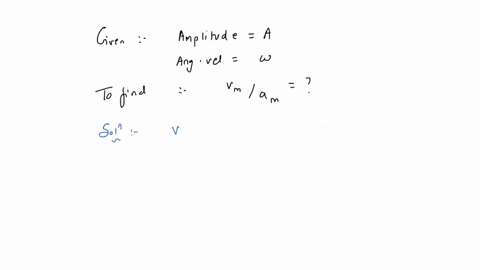 Given :- Amplitude = A
Ang. vel = ω
To find :- vm / am = ?
Solⁿ :- v